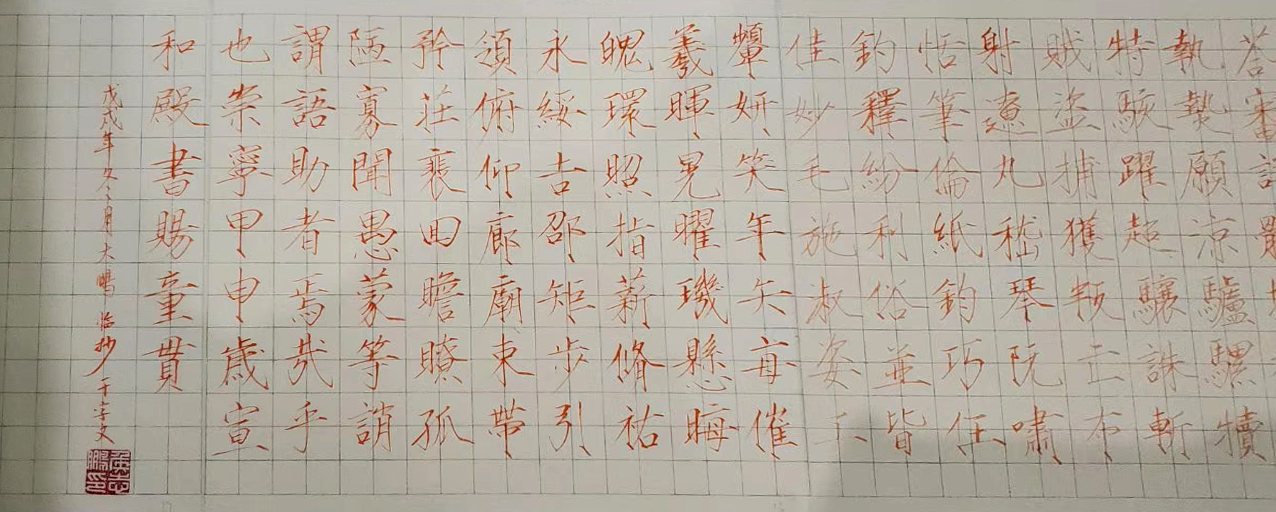 荅審
執熱願涼驢騾犢
特駭躍超驤誅斬
賊盜捕獲叛亡布
射遼丸嵇琴阮嘯
恬筆倫紙鈞巧任
釣釋紛利俗並皆
佳妙毛施淑姿工
顰妍笑年矢每催
羲暉晃曜璣懸晦
魄環照指薪脩祜
永綏吉邵矩步引
領俯仰廊廟束帶
矜莊裴回瞻孤
陋寡聞愚蒙等誚
謂語助者焉哉乎
也崇寧甲申歲宣
和殿書賜童貫
戊戌年冬月大鵬臨抄千字文